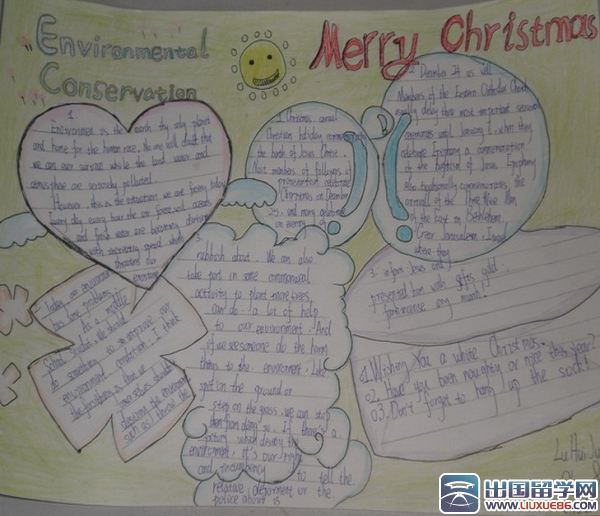 Environmental
Conservation
Merry Christmas
1
Environmen is the earth the only planet
and home for the human race. No one will doubt that
we can our survive while the land water and
atmosphere are seriously polluted.
However, this is the situation we are facing today.
Every day every hour the air forest
and fresh water are becoming
with increasing speed which
threatens our
existence
1. Christmas annual
Christian holiday commemorating
the birth of Jesus Christ.
Most members of
celebrate
Christmas on December
25, and many celebrate
on evening of
2. December 24 as well
Members of the Eastern Orthodox Church
usually delay their most important seasonal
ceremonies until January 6, when they
celebrate Epiphany a commemoration
of the baptism of Jesus. Epiphany
Also traditionally commemorates the
arrival of the Three Wise Men
of the East in Bethlehem
near Jerusalem, Israel
where they
3.
rubbish about. We can also
take part in some
activity to plant more trees
can do a lot of help
to our environment. And
if we see someone do the harm
things to the environment, like
spit on the ground or
step on the grass, we can stop
them from doing so. If there's a
factory which destroy the
environment, it's our right
and to tell the
relative department or the
police about is
2. Today our environment
has some problems
As a middle
School student, we should
do something to improve our
environment condition. I think
is that we
ourselves should
the environment
such as throw the
3. Jesus and
presented him with gifts gold
01. Wishing You a white Christmas.
02. Have you been naughty or nice this year?
03. Don't forget to hang up the sock!
出国留学网
WWW.LIUXUE86.COM